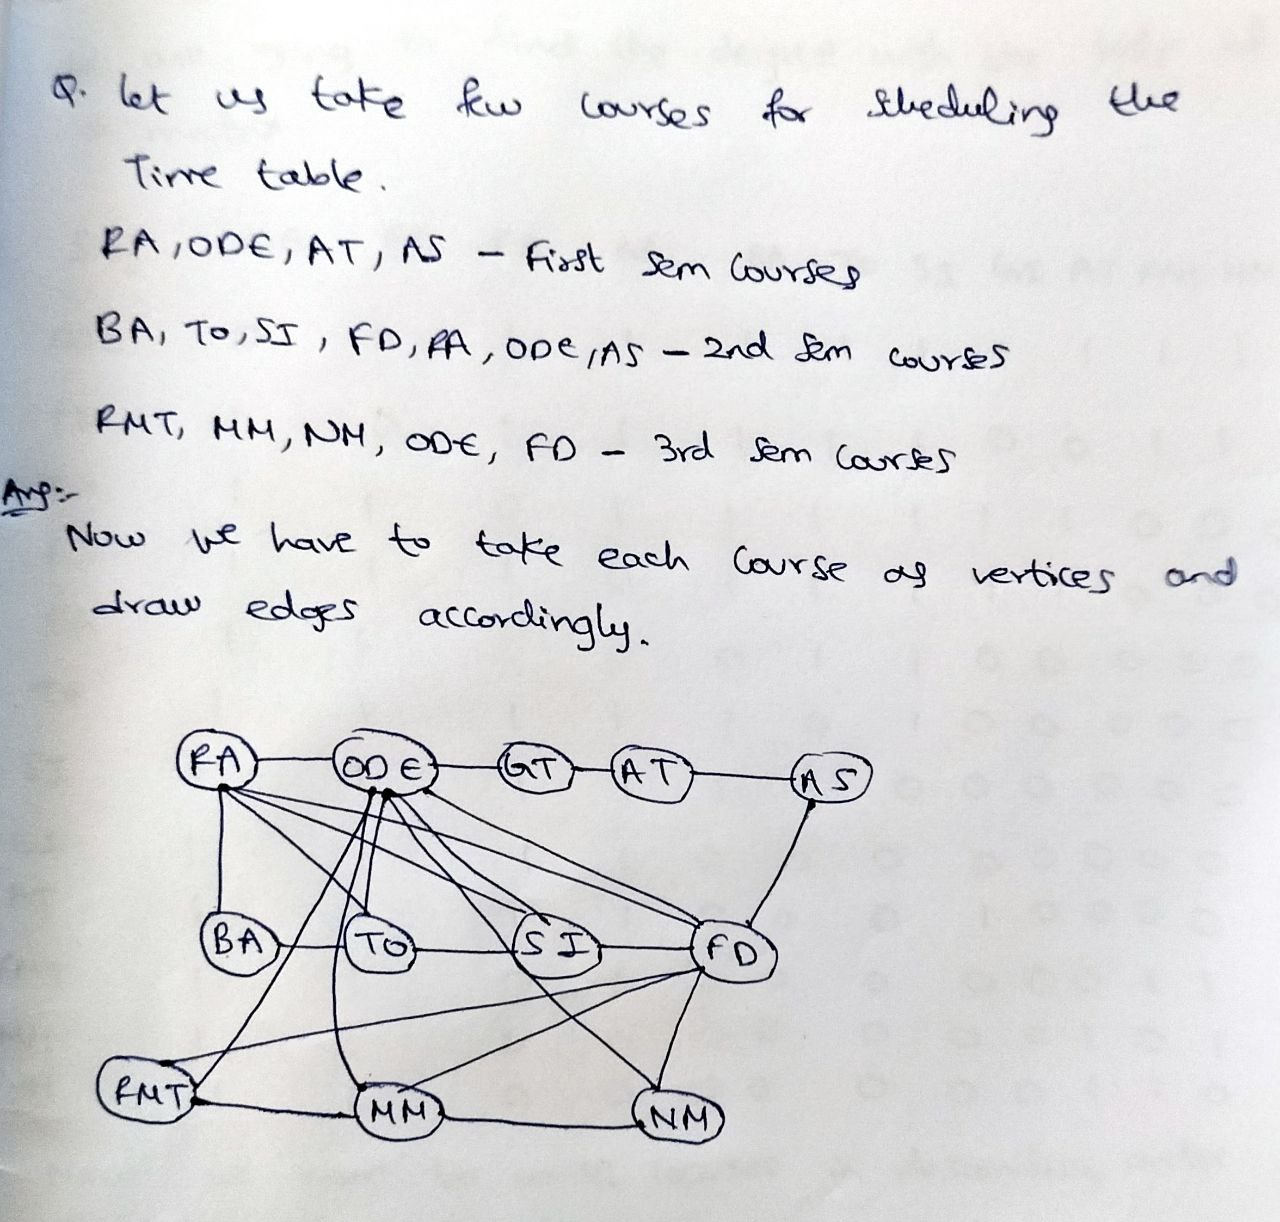 Q. let us take few courses for sheduling the
Time table.
RA, ODE, AT, AS - First Sem Courses
BA, TO, SI, FD, RA, ODE, AS - 2nd Sem courses
RMT, MM, NM, ODE, FD - 3rd Sem Courses
Ans:-
Now we have to take each Course as vertices and
draw edges accordingly.
RA ODE GT AT AS
BA TO SI FD
RMT MM NM